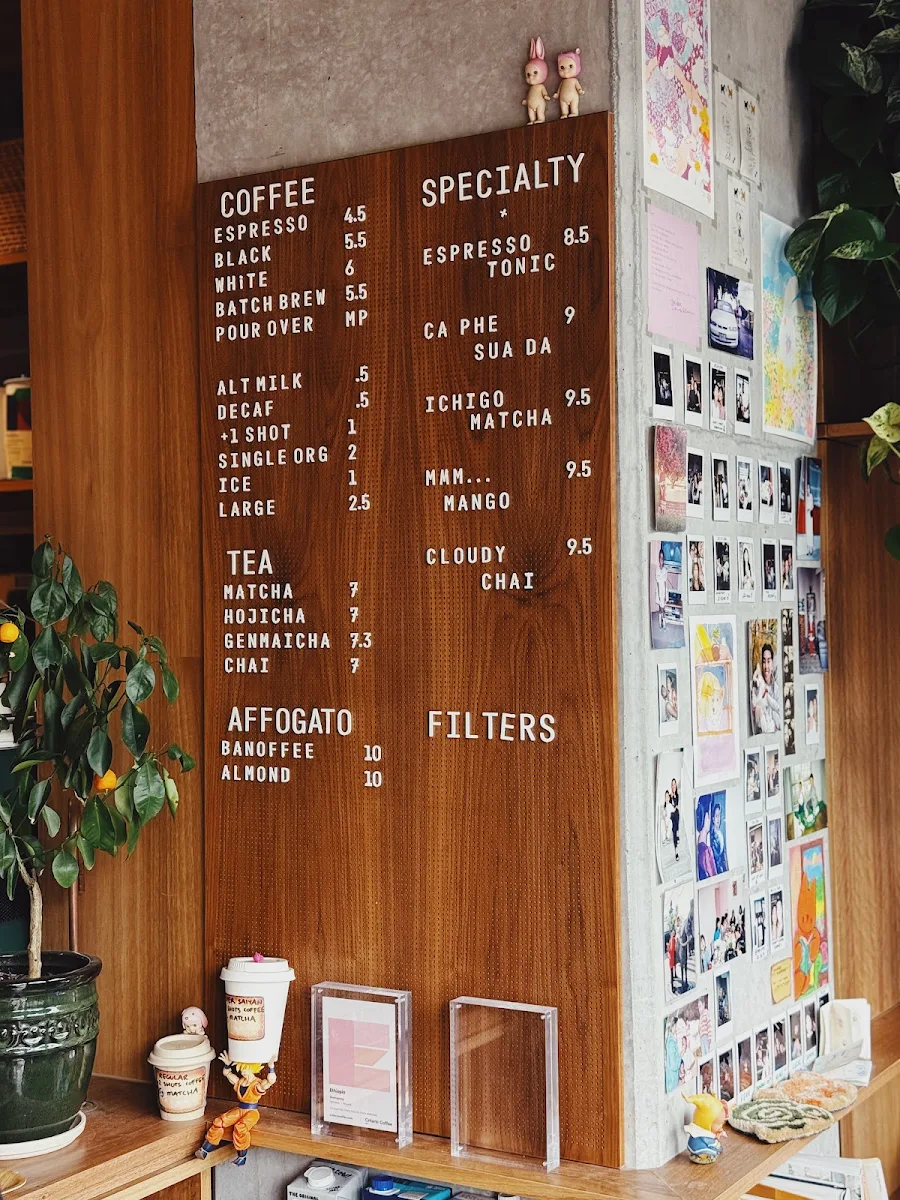 COFFEE
ESPRESSO 4.5
BLACK 5.5
WHITE 6
BATCH BREW 5.5
POUR OVER MP
ALT MILK .5
DECAF .5
+1 SHOT 1
SINGLE ORG 2
ICE 1
LARGE 2.5
TEA
MATCHA 7
HOJICHA 7
GENMAICHA 7.3
CHAI 7
AFFOGATO
BANOFFEE 10
ALMOND 10
SPECIALTY
*
ESPRESSO 8.5
TONIC
CA PHE 9
SUA DA
ICHIGO 9.5
MATCHA
MMM... 9.5
MANGO
CLOUDY 9.5
CHAI
FILTERS
SAIYAN
SHOTS COFFEE
MATCHA
REGULAR
SHOTS COFFEE
MATCHA
Ethiopia
Coffee
THE ORIGINAL